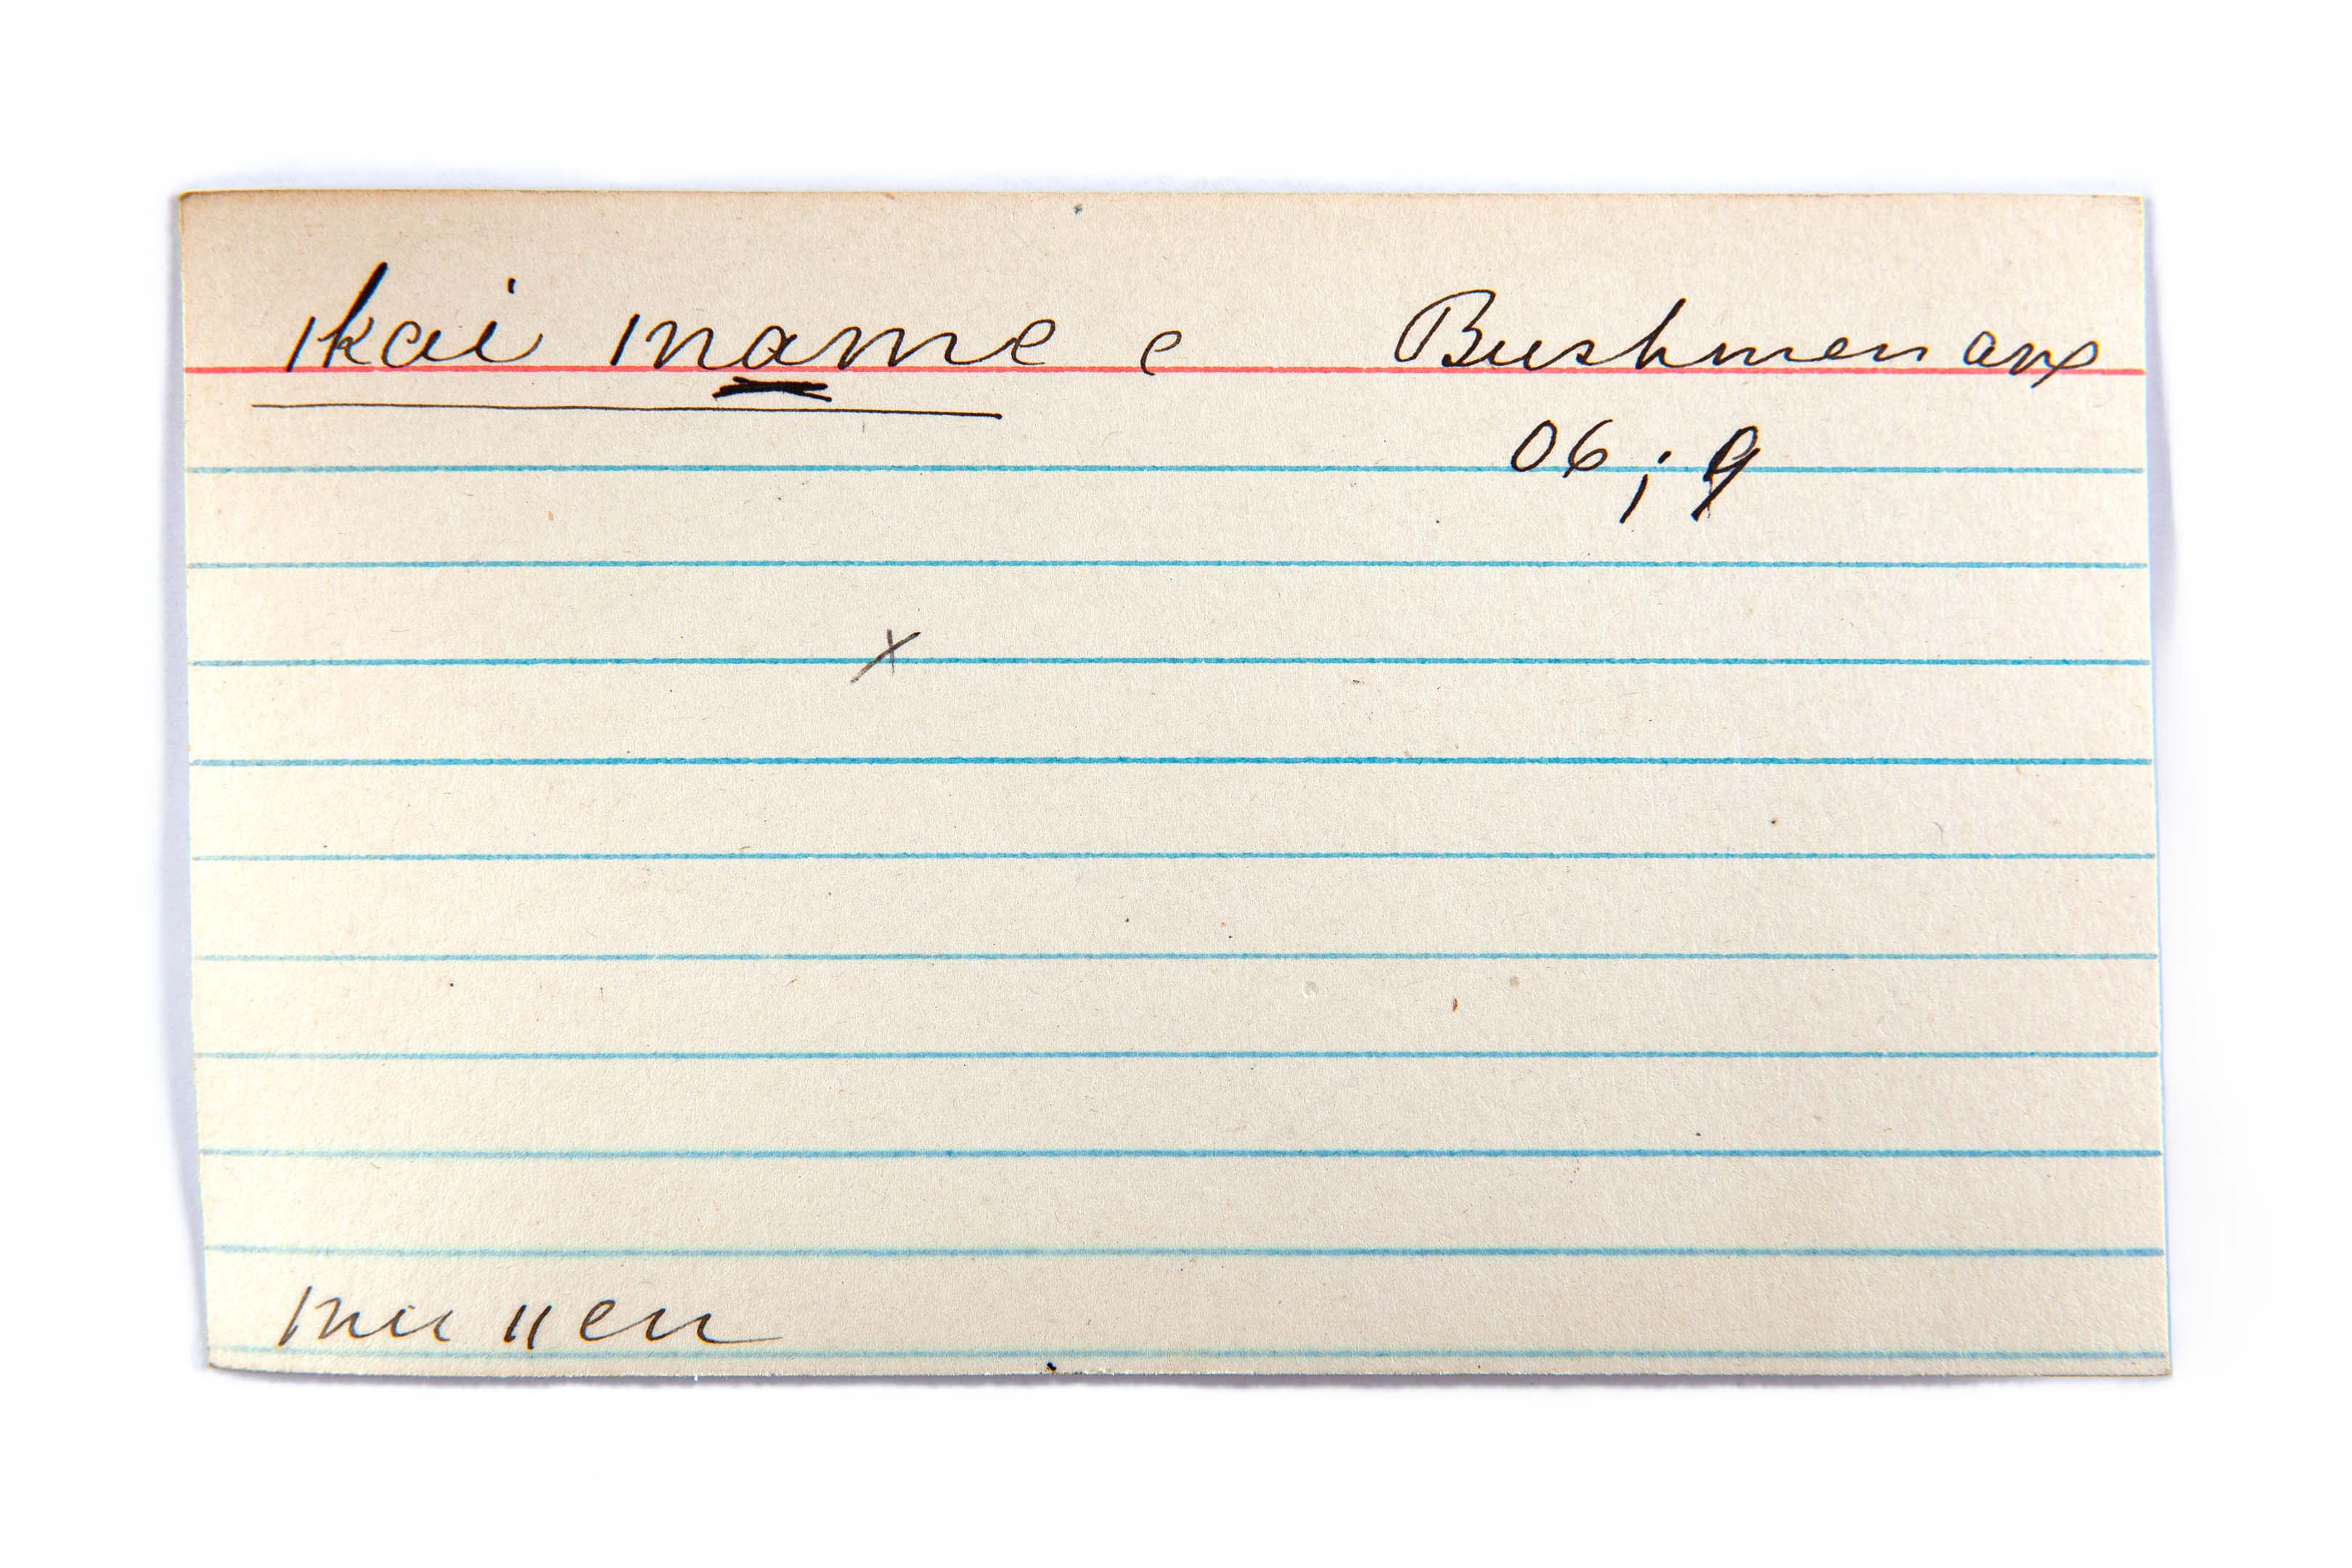 ǀkai ǀname e Bushmen arx
06; 9
x
ǀnu ǁen